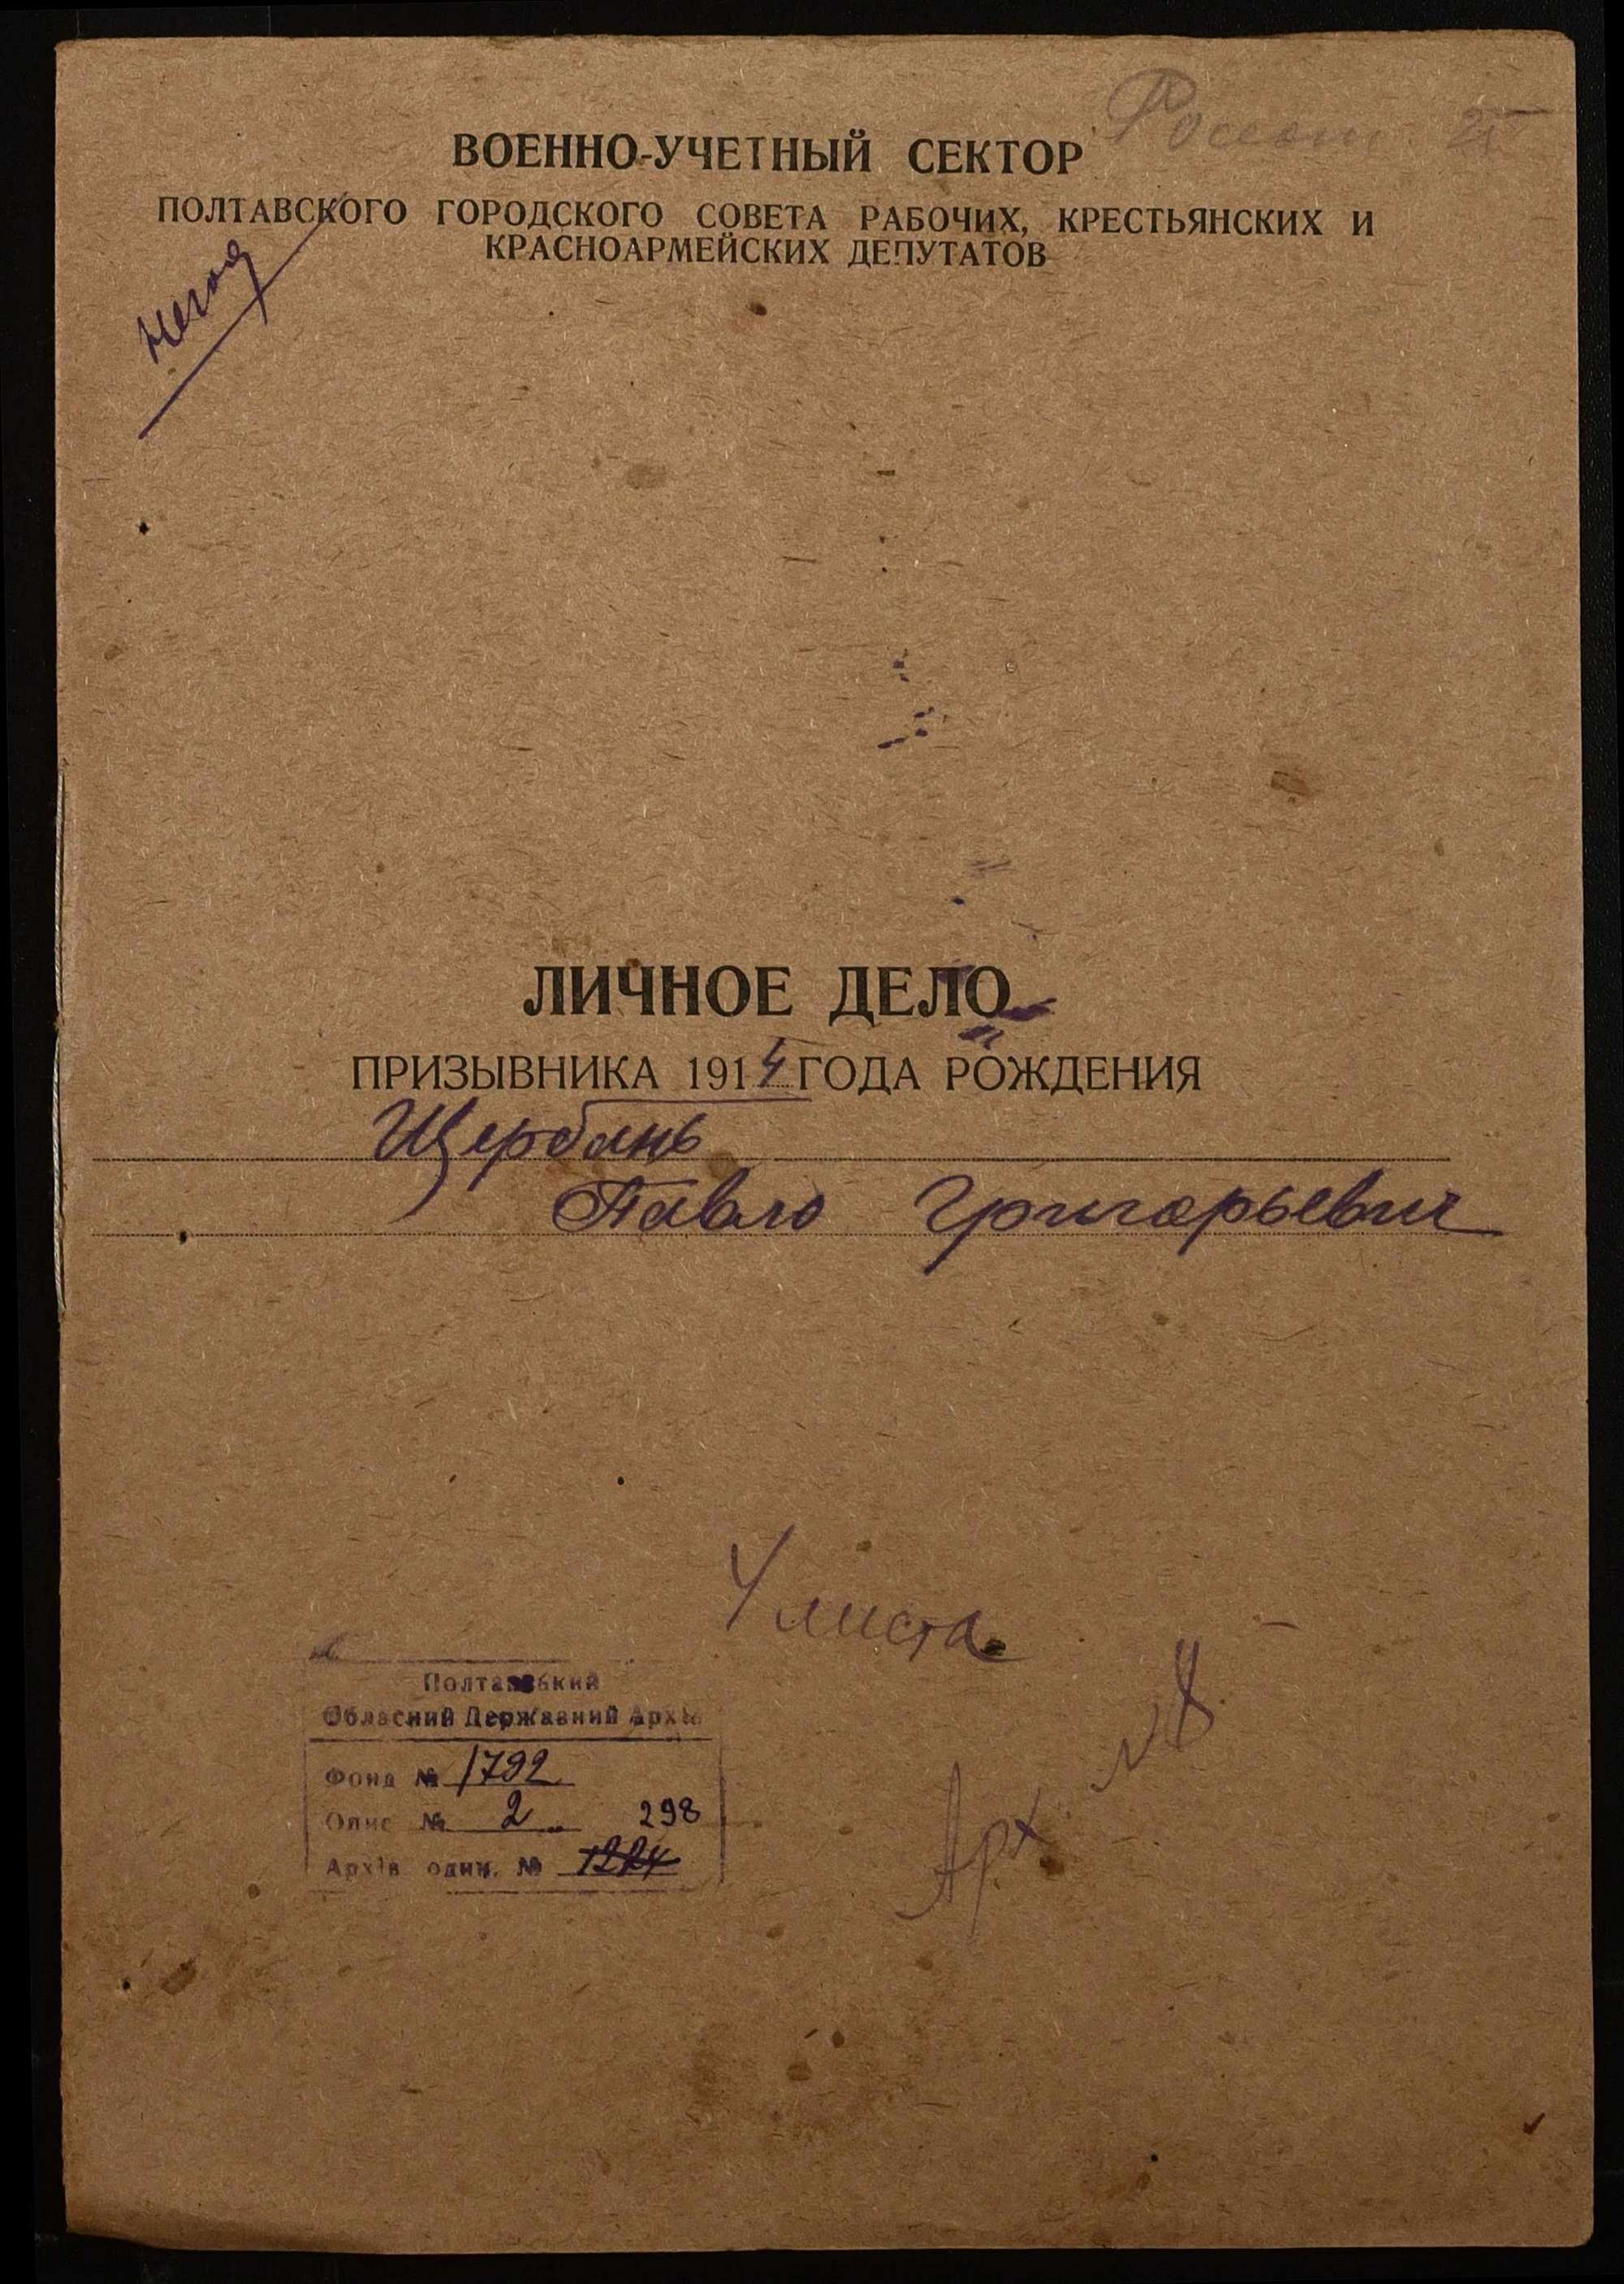 ВОЕННО-УЧЕТНЫЙ СЕКТОР
ПОЛТАВСКОГО ГОРОДСКОГО СОВЕТА РАБОЧИХ, КРЕСТЬЯНСКИХ И
КРАСНОАРМЕЙСКИХ ДЕПУТАТОВ
негод
ЛИЧНОЕ ДЕЛО
ПРИЗЫВНИКА 1914 ГОДА РОЖДЕНИЯ
Щербань
Павло Григорьевич
4 листа
Полтавський
Обласний Державний Архів
Фонд № 1792
Опис № 2 298
Архів один. № 1224
Арх